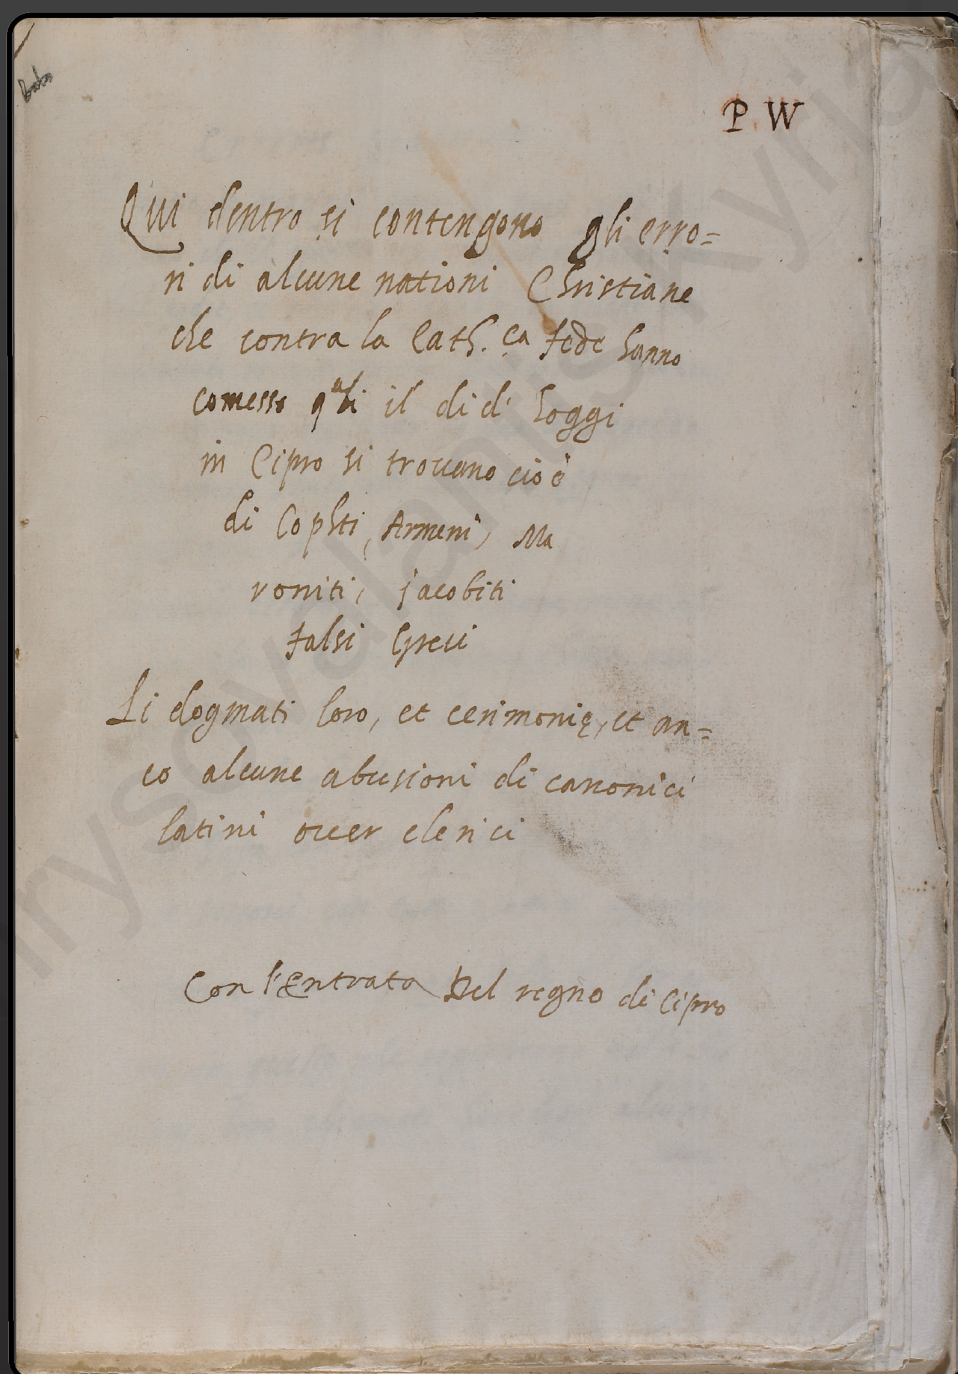 P. W
Qui dentro si contengono gli erro=
ri di alcune nationi Christiane
che contra la Cath.ca fede hanno
comesso q'ali il di d' hoggi
in Cipro si trovano cioè
di Cophti, Armeni, Ma
roniti, jacobiti
falsi Greci
Li dogmati loro, et cerimonię, et an=
co alcune abusioni di canonici
latini over clerici
Con l'Entrata Del regno di Cipro